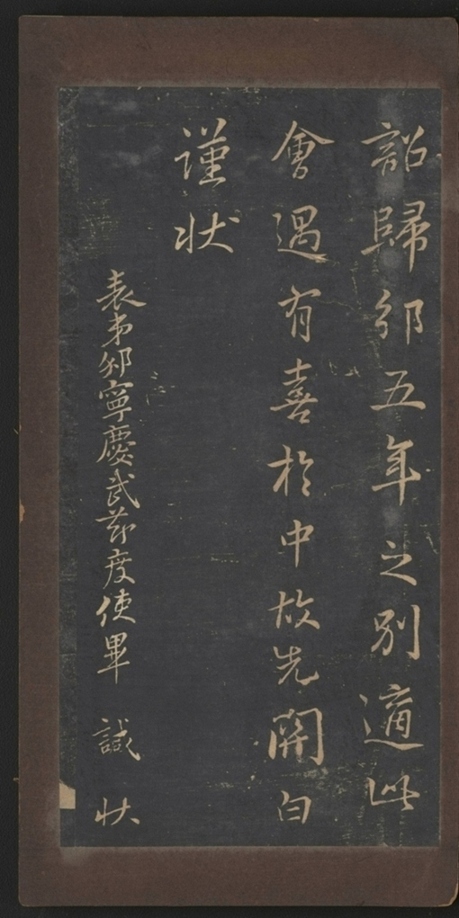 詔歸邠五年之別適此
會遇有喜於中故先開白
謹状
表弟邠寧慶武節度使畢 諴 状